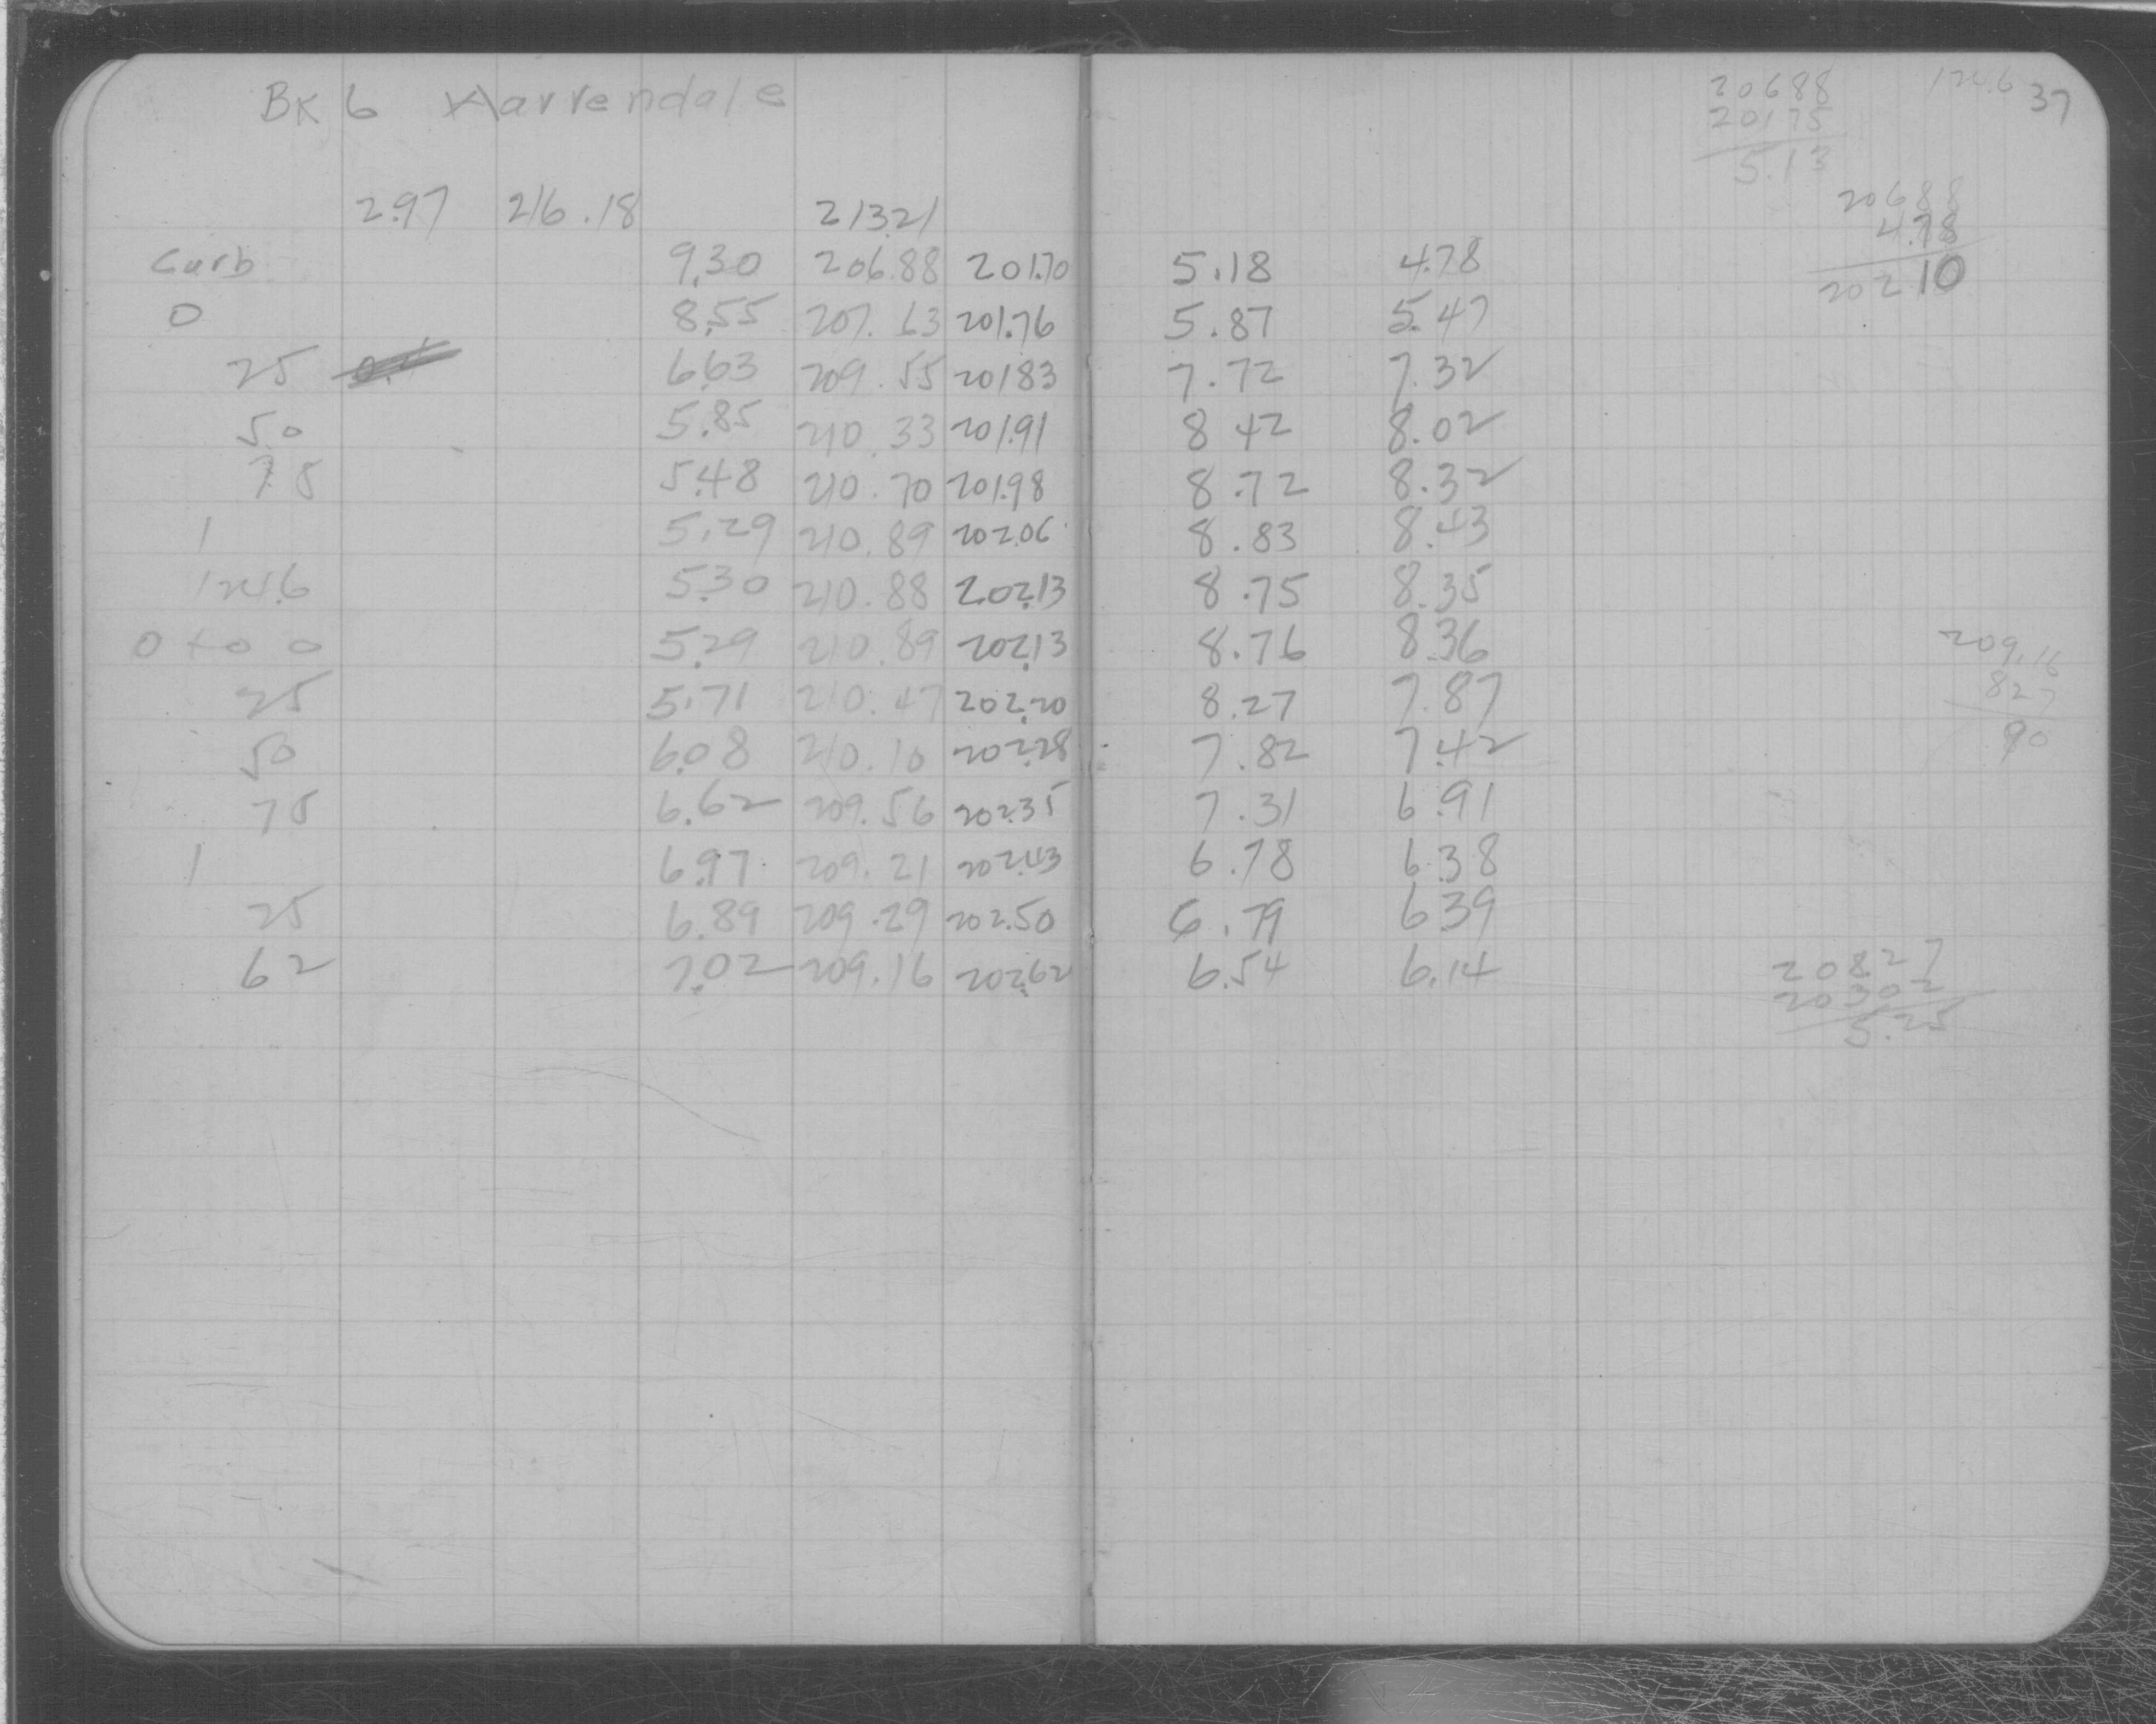 BK 6 Harrendale
2.97 216.18 213.21
Curb 9.30 206.88 201.70 5.18 4.78
0 8.55 207.63 201.76 5.87 5.47
25 6.63 209.55 201.83 7.72 7.32
50 5.85 210.33 201.91 8.42 8.02
75 5.48 210.70 201.98 8.72 8.32
1 5.29 210.89 202.06 8.83 8.43
124.6 5.30 210.88 202.13 8.75 8.35
0+00 5.29 210.89 202.13 8.76 8.36
25 5.71 210.47 202.20 8.27 7.87
50 6.08 210.10 202.28 7.82 7.42
75 6.62 209.56 202.35 7.31 6.91
1 6.97 209.21 202.43 6.78 6.38
25 6.89 209.29 202.50 6.79 6.39
62 7.02 209.16 202.62 6.54 6.14
124.6 37
20688
20175
5.13
20688
4.78
20210
209.16
827
90
20827
20302
5.25